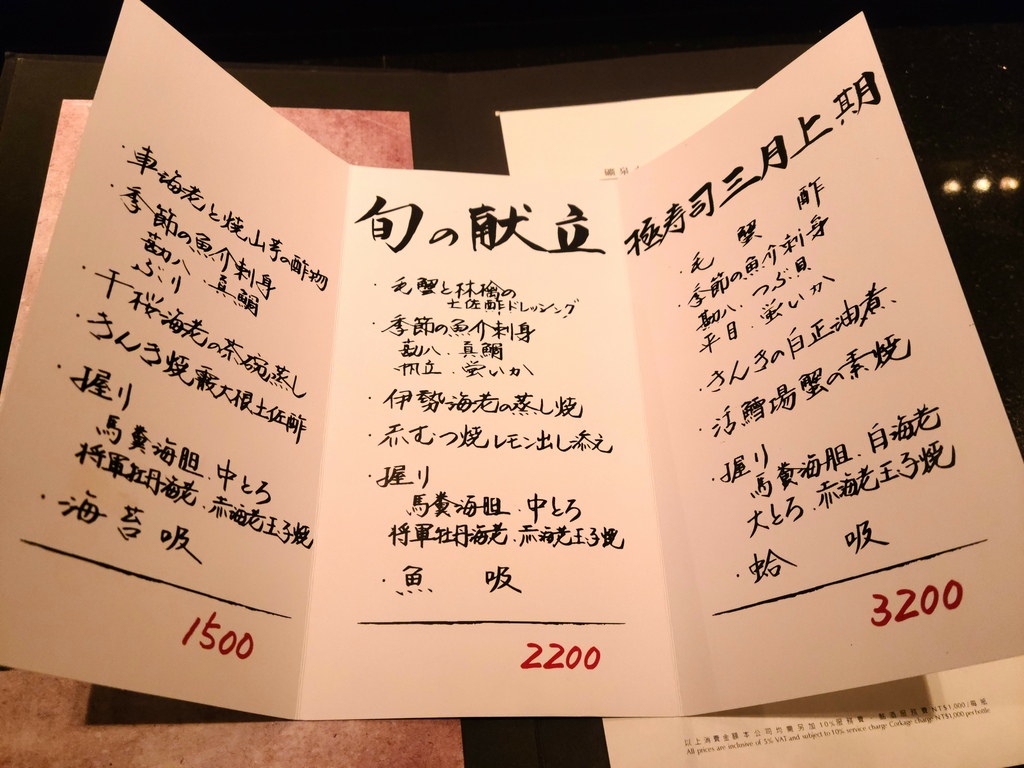 ・車海老と焼山芋の酢物
・季節の魚介刺身
勘八．真鯛
ぶり
・干桜海老の茶碗蒸し
・きんき焼霰大根土佐酢
・握り
馬糞海胆．中とろ
将軍牡丹海老．赤海老玉子焼
・海苔吸
1500
旬の献立
・毛蟹と林檎の
土佐酢ドレッシング
・季節の魚介刺身
勘八．真鯛
帆立．蛍いか
・伊勢海老の蒸し焼
・赤むつ焼レモン出し添え
・握り
馬糞海胆．中とろ
将軍牡丹海老．赤海老玉子焼
・魚吸
2200
極寿司三月上期
・毛蟹酢
・季節の魚介刺身
勘八．つぶ貝
平目．蛍いか
・きんきの白正油煮
・活鱈場蟹の素焼
・握り
馬糞海胆．白海老
大とろ．赤海老玉子焼
・蛤吸
3200
礦泉
以上消費金額本公司均需另加10%服務費，
NT$1,000/每瓶
All prices are inclusive of 5% VAT and subject to 10% service charge Corkage charge NT$1,000 per bottle